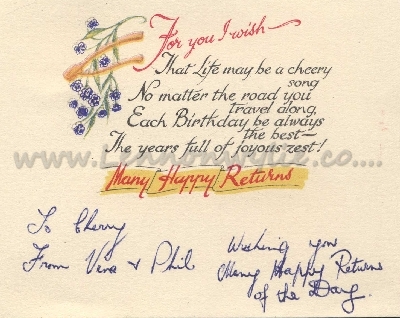 For you I wish —
That Life may be a cheery
song
No matter the road you
travel along,
Each Birthday be always
the best —
The years full of joyous zest!
www.Lennonwylie.co....
Many Happy Returns
To Cherry
From Vera & Phil
Wishing you
Many Happy Returns
of the Day.